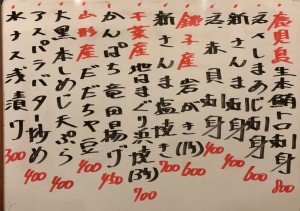 鹿児島産 生本鮪トロ刺身 800
活〆しまあじ刺身 600
新さんま刺身 400
活赤貝刺身 600
銚子産 岩がき
新さんま塩焼き
千葉産 地はまぐり浜焼 700
かんぱち竜田揚げ 450
山形産 だだちゃ豆 400
大黒本しめじ天ぷら 400
アスパラバター炒め 400
水ナス浅漬け 300